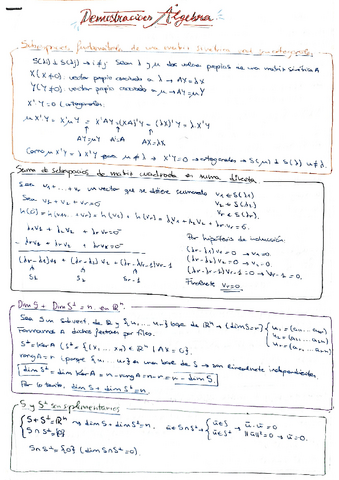 Demostraciones Álgebra
Subespacios fundamentales de una matriz simétrica son ortogonales.
S(λi) ⊥ S(λj) → i≠j. Sean λ y μ dos valores propios de una matriz simétrica A
X (X≠0). vector propio asociado a λ → AX=λX
Y (Y≠0). vector propio asociado a μ → AY=μY
XᵗY=0 (ortogonales).
μXᵗY = XᵗμY = XᵗAY = (XA)ᵗY = (λX)ᵗY = λXᵗY
AY=μY A=Aᵗ AX=λX
Como μXᵗY = λXᵗY para μ≠λ → XᵗY=0 → ortogonales → S(μ) ⊥ S(λ) μ≠λ.
Suma de subespacios de matriz cuadrada es suma directa
Sea v1+...+vr un vector que se define sumando v1 ∈ S(λ1)
v2 ∈ S(λ2)
vr ∈ S(λr).
Sea v1+v2+vr=0
h(0) = h(v1+...+vr) = h(v1) + h(vr) = λ1v1+λ2v2+λrvr=0.
λrv1 + λrv2 + λrvr=0
Por hipótesis de inducción:
- λ1v1 + λ2v2 + λrvr=0
(λr-λ1)v1=0 → v1=0.
(λr-λ2)v2=0 → v2=0.
(λr-λ1)v1 + (λr-λ2)v2 + (λr-λr-1)vr-1
(λr-λr-1)vr-1=0 → vr-1=0.
S1 S2 Sr-1
Finalmente vr=0.
Dim S + Dim S⊥ = n. en ℝⁿ.
Sea S un subvect. de ℝⁿ y {u1,...,ur} base de ℝⁿ → (dim S=r)
u1=(a11...a1n)
u2=(a21...a2n)
ur=(ar1...arn)
Formamos A dichos vectores por filas.
S⊥=Ker A (S⊥ = {(x1,...,xn) ∈ ℝⁿ | AX=0}.
rang A=r (porque {u1...ur} es una base de S → son linealmente independientes.
dim S⊥ = dim Ker A = n-rang A = n-r = n-dim S.
Por lo tanto, dim S + dim S⊥=n.
S y S⊥ son suplementarios
S+S⊥=ℝⁿ → dim S + dim S⊥=n.
S∩S⊥={0}
ū∈S∩S⊥ → ū∈S ū∈S⊥ → ū·ū=0 ‖ū‖²=0 → ū=0.
S∩S⊥={0} (dim S∩S⊥=0).